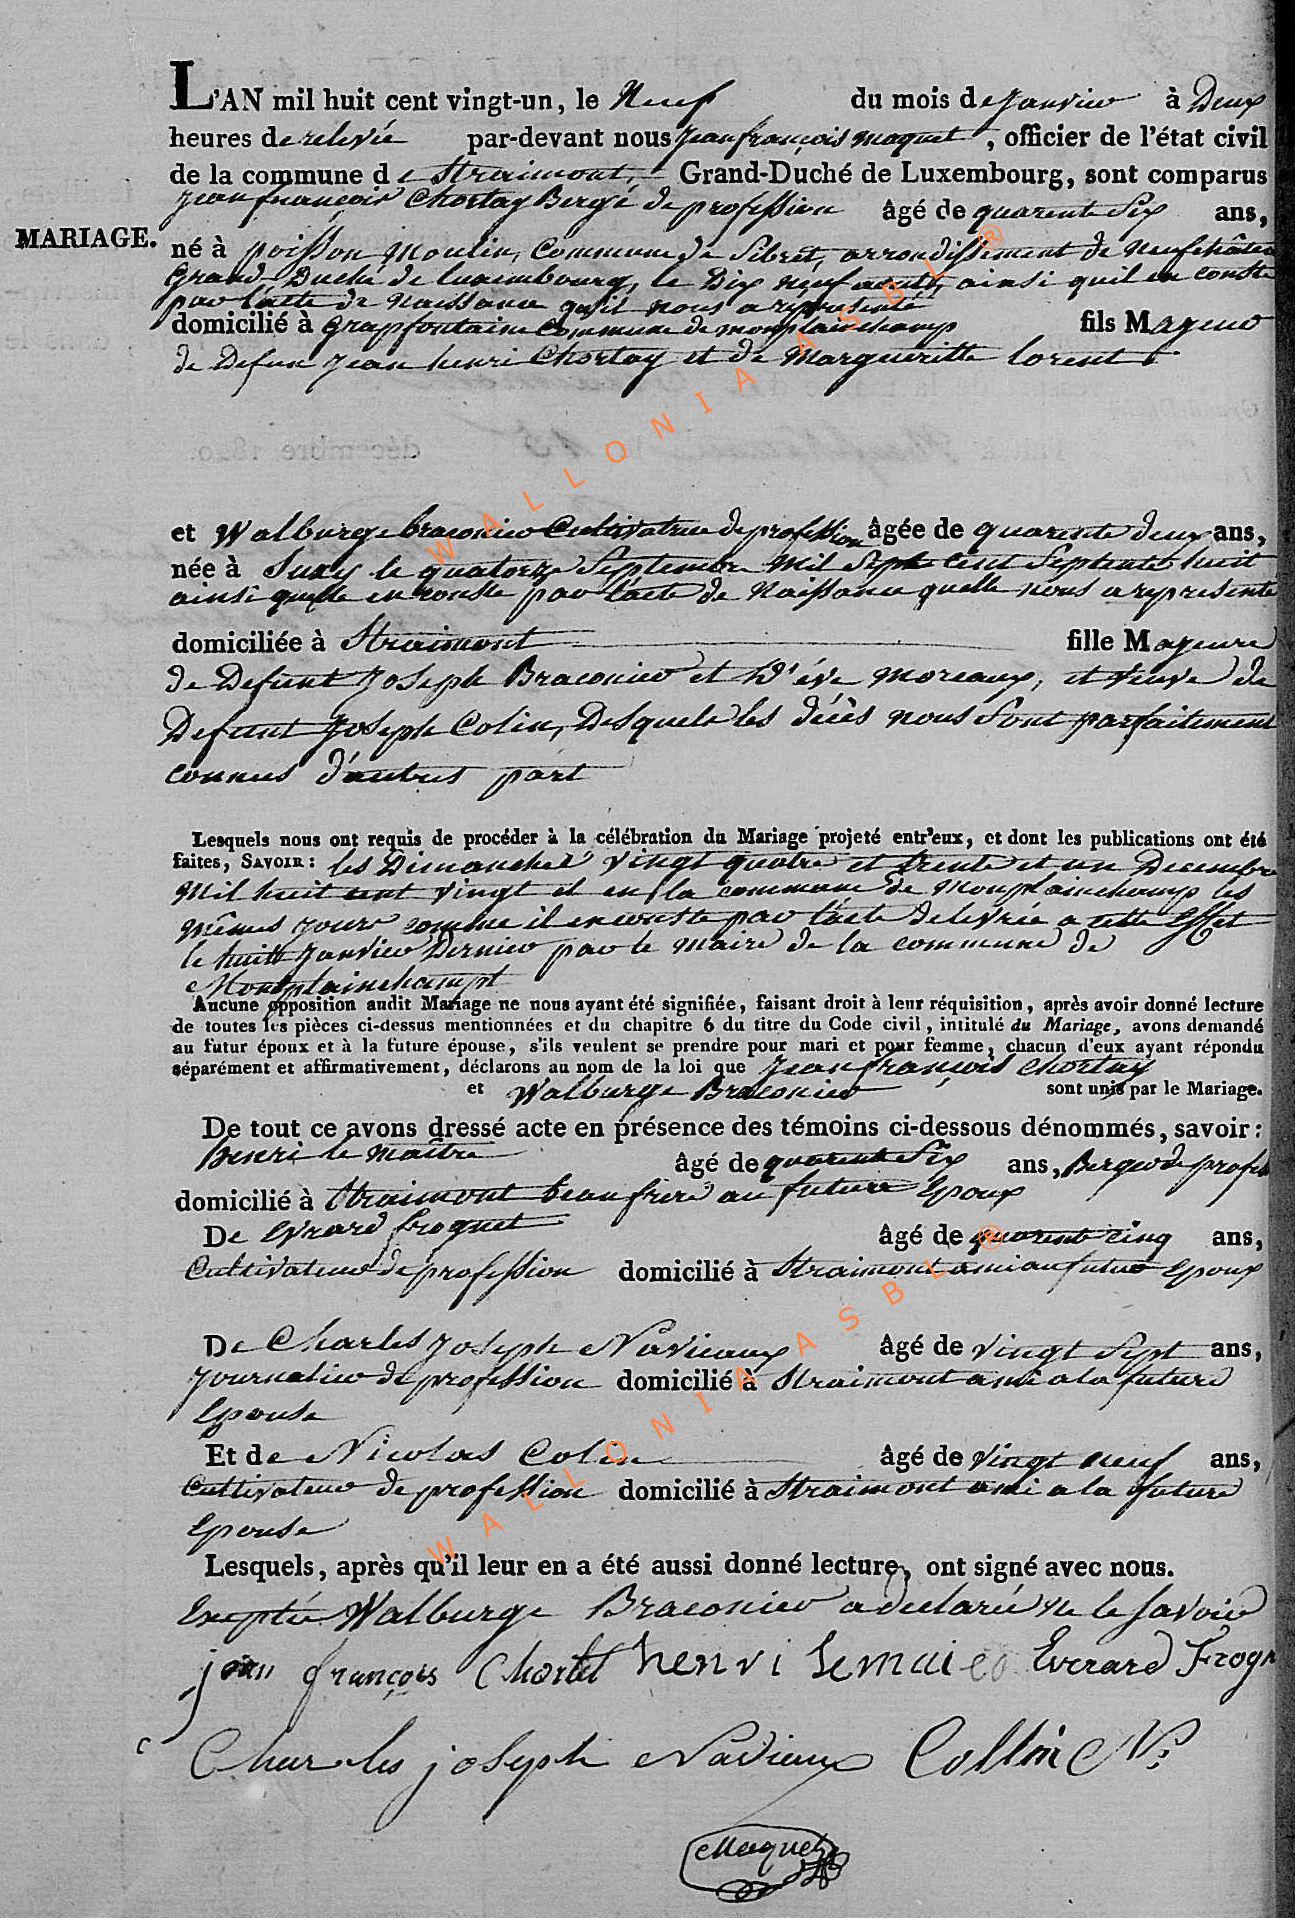 L'AN mil huit cent vingt-un, le Neuf du mois de Janvier à Deux
heures de relevée par-devant nous Jean françois Maquet, officier de l'état civil
de la commune de Straimont, Grand-Duché de Luxembourg, sont comparus
Jean françois Chortay Bergé de profession âgé de quarente Six ans,
MARIAGE.
né à poisson Moulin, Commune de Sibret, arrondissement de Neufchâteau
Grand Duché de luxembourg, le Dix neuf aout, ainsi quil en conste
par l'acte de Naissance qu'il nous a representé
domicilié à Grapfontaine Commune de monplainchamp fils Majeur
de Defun Jean henri Chortay et de Margueritte lorent.
et Walburge braconier Cultivatrice de profession âgée de quarente deux ans,
née à Suxy le quatorze Septembre Mil Sept Cent Septente huit
ainsi quelle en conste par l'acte de Naissance quelle nous a representé
domiciliée à Straimont fille Majeure
de Defunt Joseph Braconier et D'éve Moreaux, et veuve de
Defunt Joseph Colin, Desquels les décès nous Sont parfaitement
connus d'autres part
Lesquels nous ont requis de procéder à la célébration du Mariage projeté entr'eux, et dont les publications ont été
faites, SAVOIR: les Dimanches vingt quatre et trente et un Decembre
Mil huit cent vingt et en la commune de Monplainchamp les
mêmes Jours comme il en conste par l'acte delivrée a cette Effet
le huit Janvier Dernier par le Maire de la commune de
Monplainchampt
Aucune opposition audit Mariage ne nous ayant été signifiée, faisant droit à leur réquisition, après avoir donné lecture
de toutes les pièces ci-dessus mentionnées et du chapitre 6 du titre du Code civil, intitulé du Mariage, avons demandé
au futur époux et à la future épouse, s'ils veulent se prendre pour mari et pour femme; chacun d'eux ayant répondu
séparément et affirmativement, déclarons au nom de la loi que Jean françois Chortay
et Walburge Braconier sont unis par le Mariage.
De tout ce avons dressé acte en présence des témoins ci-dessous dénommés, savoir:
Henri le Maitre âgé de quarente Six ans, Berger de profess
domicilié à Straimont beau frere au future Epoux
De Evrard froguet âgé de quarente cinq ans,
Cultivateur de profession domicilié à Straimont ami au futur Epoux
De Charles Joseph Navieaux âgé de vingt Sept ans,
Journalier de profession domicilié à Straimont ami a la future
Epouse
Et de Nicolas Colin âgé de vingt neuf ans,
Cultivateur de profession domicilié à Straimont ami a la future
Epouse
Lesquels, après qu'il leur en a été aussi donné lecture, ont signé avec nous.
Exeptée Walburge Braconier a declarée ne le Savoir
jean françois Chortet henri lemaire Everard Frogn
Charles joseph Navieux Collin N
Maquet
WALLONIA ASBL ®
WALLONIA ASBL ®